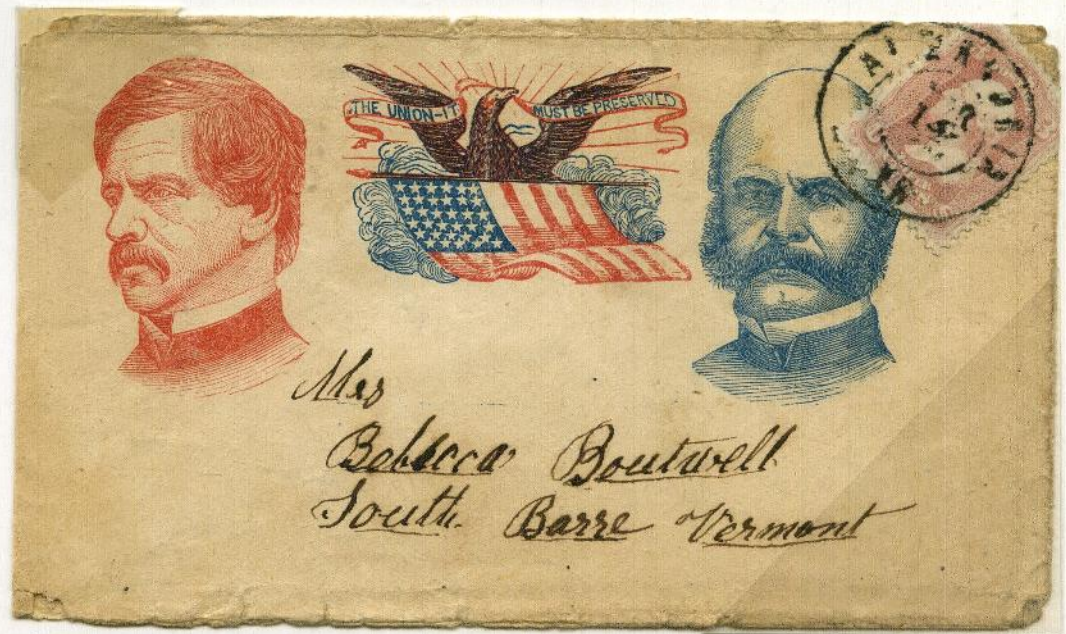 THE UNION-IT MUST BE PRESERVED
Mrs
Rebecca Boutwell
South Barre Vermont